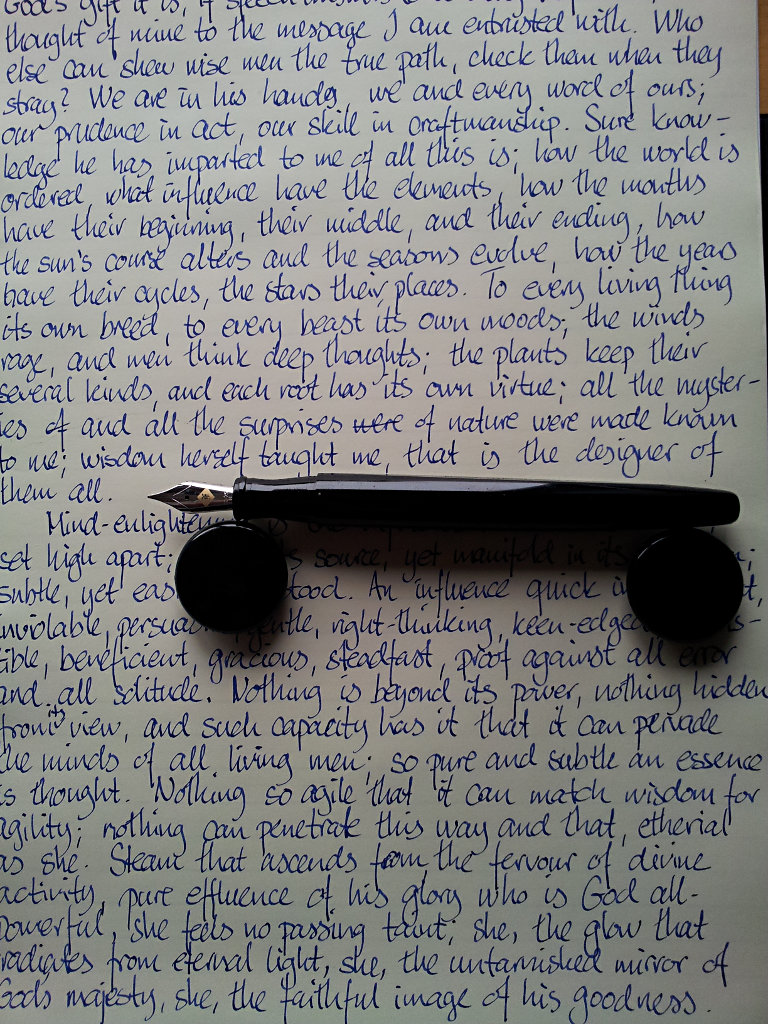 God's gift it is, if speech
thought of mine to the message I am entrusted with. Who
else can shew wise men the true path, check them when they
stray? We are in his hands, we and every word of ours;
our prudence in act, our skill in craftmanship. Sure know-
ledge he has imparted to me of all this is; how the world is
ordered, what influence have the elements, how the months
have their beginning, their middle, and their ending, how
the sun's course alters and the seasons evolve, how the years
have their cycles, the stars their places. To every living thing
its own breed, to every beast its own moods; the winds
rage, and men think deep thoughts; the plants keep their
several kinds, and each root has its own virtue; all the myster-
ies of and all the surprises were of nature were made known
to me; wisdom herself taught me, that is the designer of
them all.
Mind-enlighten is the
set high apart: source, yet manifold in its
subtle, yet eas stood. An influence quick in
inviolable, persua gentle, right-thinking, keen-edged s-
ible, beneficient, gracious, steadfast, proof against all error
and all solitude. Nothing is beyond its power, nothing hidden
from its view, and such capacity has it that it can pervade
the minds of all living men; so pure and subtle an essence
is thought. Nothing so agile that it can match wisdom for
agility; nothing can penetrate this way and that, etherial
as she. Steam that ascends from the fervour of divine
activity, pure effluence of his glory who is God all-
powerful, she feels no passing taint; she, the glow that
radiates from eternal light, she, the untarnished mirror of
God's majesty, she, the faithful image of his goodness.